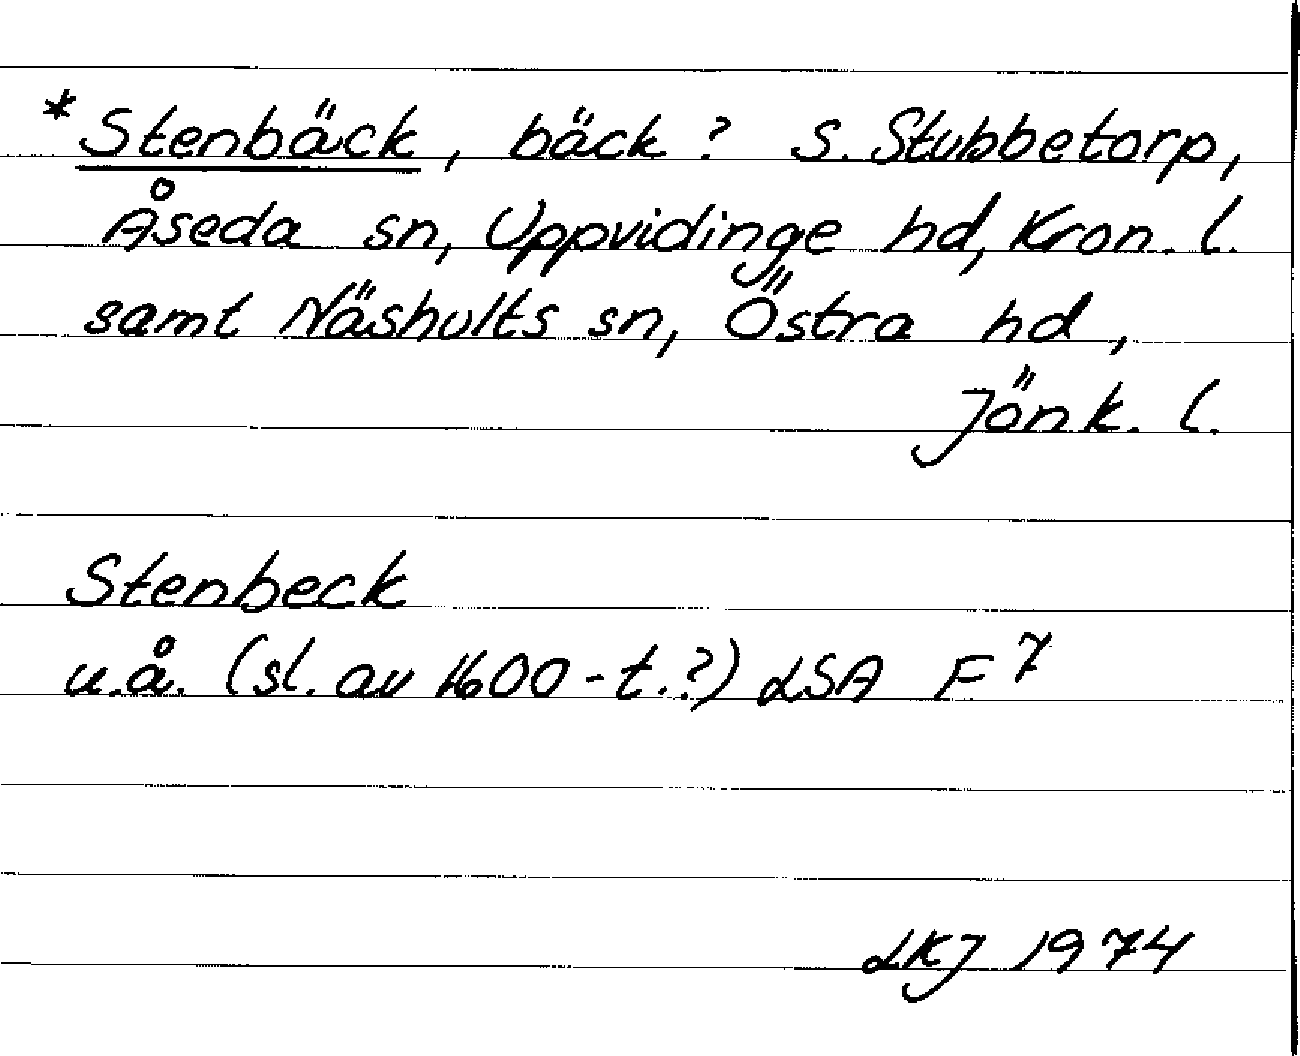 *Stenbäck, bäck? S. Stubbetorp,
Åseda sn, Uppvidinge hd, Kron. l.
samt Näshults sn, Östra hd,
Jönk. l.
Stenbeck
u.å. (sl. av 1600-t.?) LSA F 7
LKJ 1974